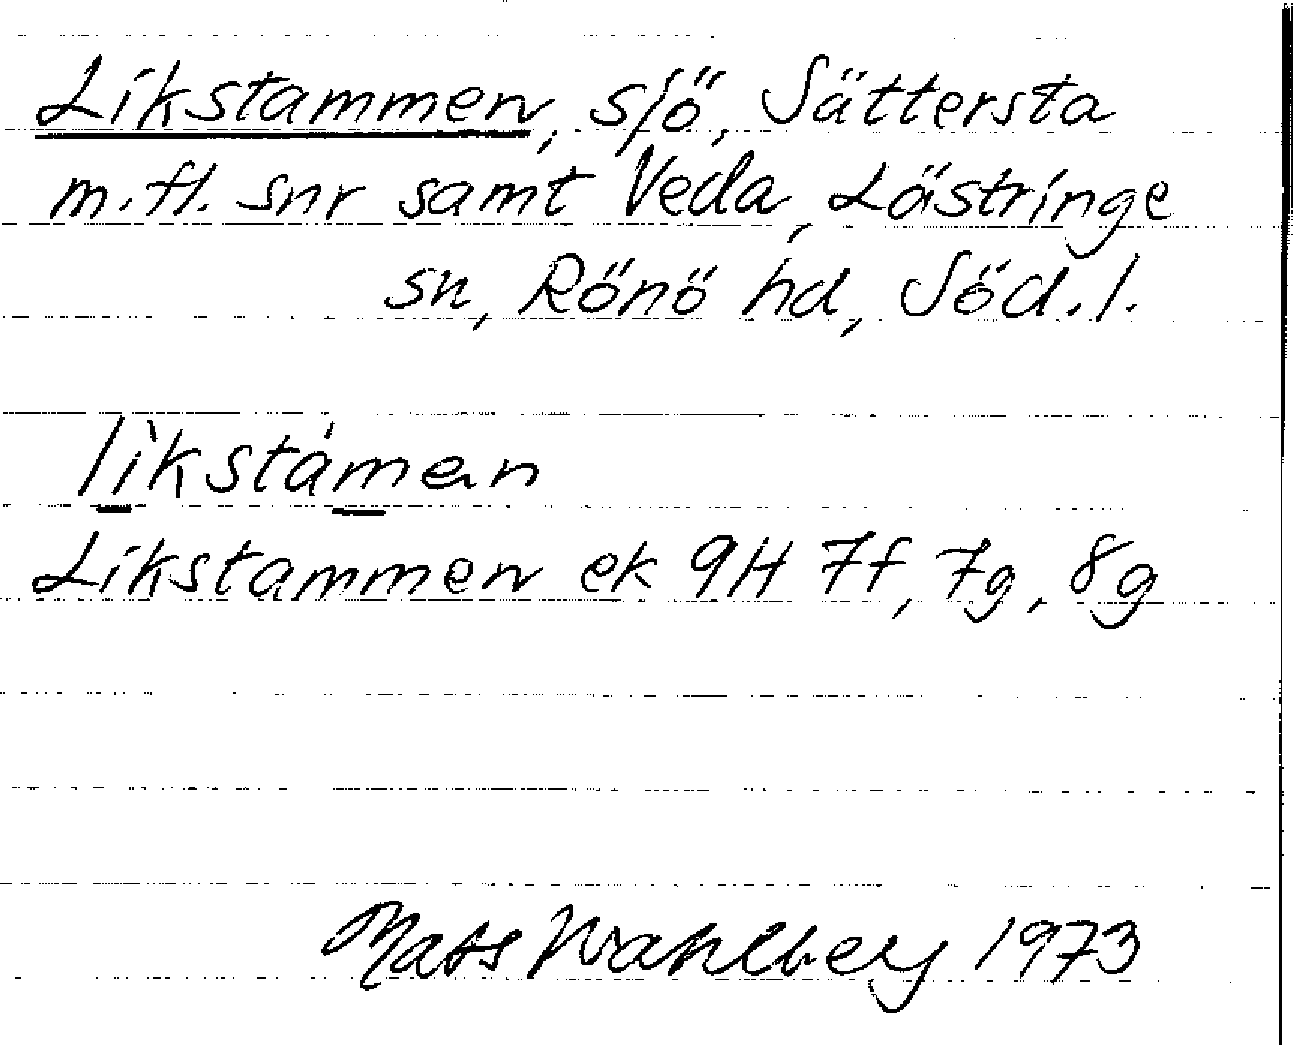 Likstammen, sjö, Sättersta
m.fl. snr samt Veda, Lästringe
sn, Rönö hd, Söd.l.
lìkstámen
Likstammen ek 9H 7f, 7g, 8g
Mats Wahlberg 1973